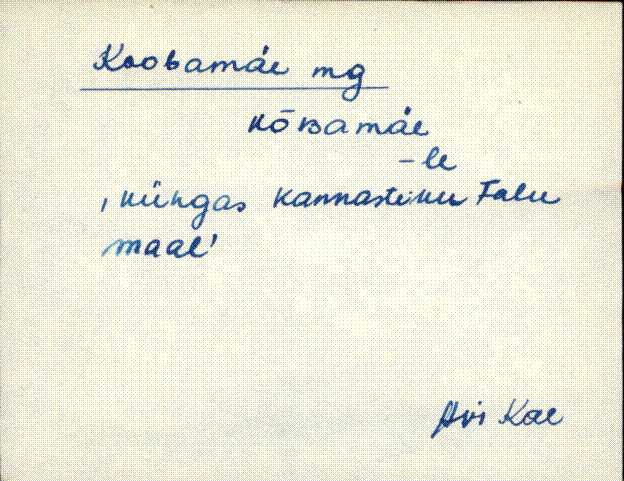 Koobamäe mg
kōBamäe
-le
'küngas Kannastiku Talu
maal'
Avi Kae